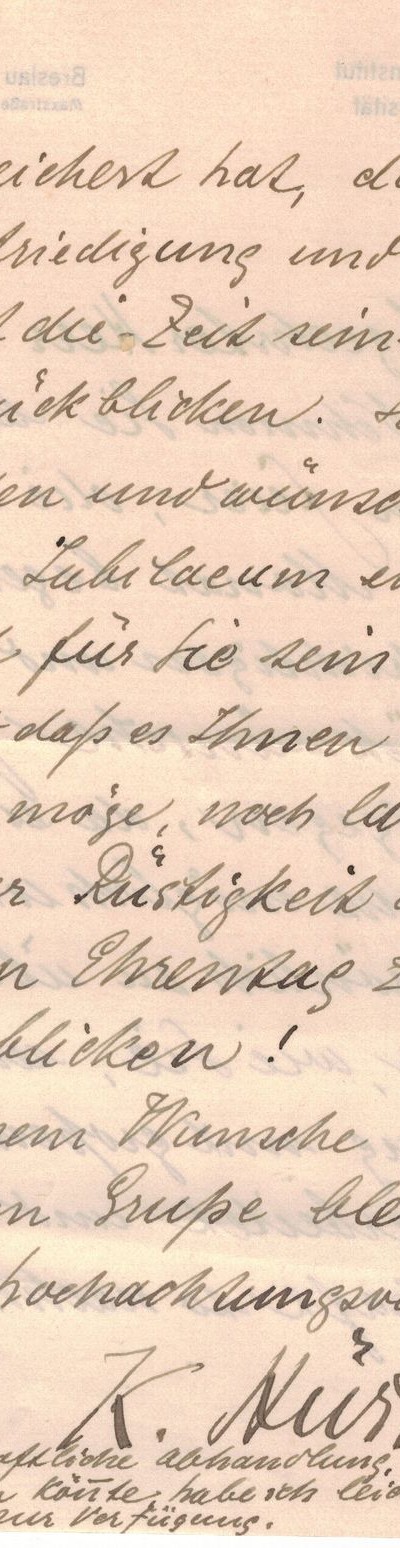 eichert hat, da
friedigung und
die Zeit sein
ückblicken.
en und wünsc
Jubilaeum e
für Sie sein
daß es Ihnen
möge, noch la
r Rüstigkeit
n Ehrentag z
blicken!
nem Wunsche
n Gruße ble
hochachtungsvo
K. Hür
aftliche abhandlung,
n könte, habe ich leid
zur Verfügung.